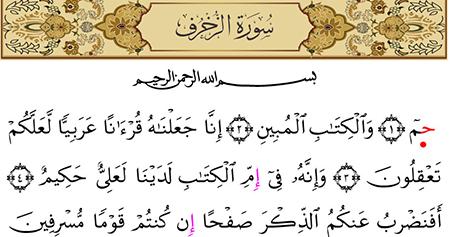 سُورَةُ الزُّخْرُفِ
بسم الله الرحمن الرحيم
حمٓ ﴿١﴾ وَٱلْكِتَٰبِ ٱلْمُبِينِ ﴿٢﴾ إِنَّا جَعَلْنَٰهُ قُرْءَٰنًا عَرَبِيًّا لَّعَلَّكُمْ
تَعْقِلُونَ ﴿٣﴾ وَإِنَّهُۥ فِىٓ إِمِّ ٱلْكِتَٰبِ لَدَيْنَا لَعَلِىٌّ حَكِيمٌ ﴿٤﴾
أَفَنَضْرِبُ عَنكُمُ ٱلذِّكْرَ صَفْحًا إِن كُنتُمْ قَوْمًا مُّسْرِفِينَ